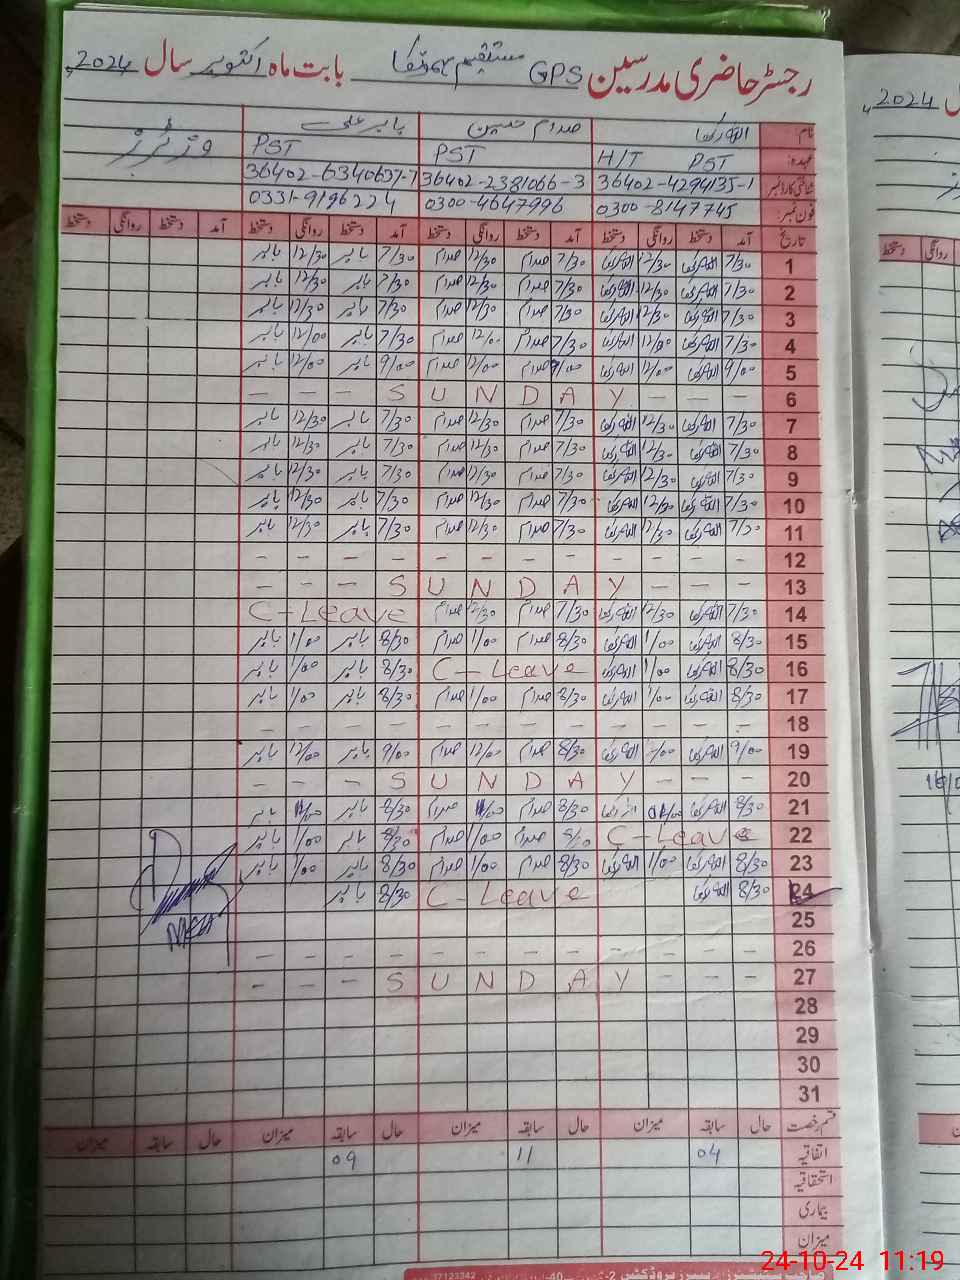 رجسٹر حاضری مدرسین GPS بابت ماہ اکتوبر سال 2024ء
نام: اللہ رکھا صدام حسین بابر علی وزیٹرز
عہدہ: PST H/T PST PST
شناختی کارڈ نمبر 36402-4294135-1 36402-2381066-3 36402-6340637-7
فون نمبر: 0300-8147745 0300-4647996 0331-9196224
تاریخ آمد دستخط روانگی دستخط آمد دستخط روانگی دستخط آمد دستخط روانگی دستخط آمد دستخط روانگی دستخط
1 7/30 اللہ رکھا 12/30 اللہ رکھا 7/30 صدام 12/30 صدام 7/30 بابر 12/30 بابر
2 7/30 اللہ رکھا 12/30 اللہ رکھا 7/30 صدام 12/30 صدام 7/30 بابر 12/30 بابر
3 7/30 اللہ رکھا 12/30 اللہ رکھا 7/30 صدام 12/30 صدام 7/30 بابر 12/30 بابر
4 7/30 اللہ رکھا 12/00 اللہ رکھا 7/30 صدام 12/00 صدام 7/30 بابر 12/00 بابر
5 9/00 اللہ رکھا 12/00 اللہ رکھا 9/00 صدام 12/00 صدام 9/00 بابر 12/00 بابر
6 - - - S U N D A Y - - -
7 7/30 اللہ رکھا 12/30 اللہ رکھا 7/30 صدام 12/30 صدام 7/30 بابر 12/30 بابر
8 7/30 اللہ رکھا 12/30 اللہ رکھا 7/30 صدام 12/30 صدام 7/30 بابر 12/30 بابر
9 7/30 اللہ رکھا 12/30 اللہ رکھا 7/30 صدام 12/30 صدام 7/30 بابر 12/30 بابر
10 7/30 اللہ رکھا 12/30 اللہ رکھا 7/30 صدام 12/30 صدام 7/30 بابر 12/30 بابر
11 7/30 اللہ رکھا 12/30 اللہ رکھا 7/30 صدام 12/30 صدام 7/30 بابر 12/30 بابر
12 - - - - - - - - - - - -
13 - - - S U N D A Y - - -
14 7/30 اللہ رکھا 12/30 اللہ رکھا 7/30 صدام 12/30 صدام C-Leave
15 8/30 اللہ رکھا 1/00 اللہ رکھا 8/30 صدام 1/00 صدام 8/30 بابر 1/00 بابر
16 8/30 اللہ رکھا 1/00 اللہ رکھا C-Leave 8/30 بابر 1/00 بابر
17 8/30 اللہ رکھا 1/00 اللہ رکھا 8/30 صدام 1/00 صدام 8/30 بابر 1/00 بابر
18 - - - - - - - - - - - -
19 9/00 اللہ رکھا اللہ رکھا 8/30 صدام 12/00 صدام 9/00 بابر 12/00 بابر
20 - - - S U N D A Y - - -
21 8/30 اللہ رکھا اللہ رکھا 8/30 صدام صدام 8/30 بابر بابر
22 C-Leave صدام 1/00 صدام 8/30 بابر 1/00 بابر
23 8/30 اللہ رکھا 1/00 اللہ رکھا 8/30 صدام 1/00 صدام 8/30 بابر 1/00 بابر
24 8/30 اللہ رکھا C-Leave 8/30 بابر
25
26 - - - - - - - - - - - -
27 - - - S U N D A Y - - -
28
29
30
31
قسم رخصت حال سابقہ میزان حال سابقہ میزان حال سابقہ میزان حال سابقہ میزان
اتفاقیہ 04 11 09
استحقاقیہ
بیماری
میزان
2024ء
روانگی دستخط
24-10-24 11:19